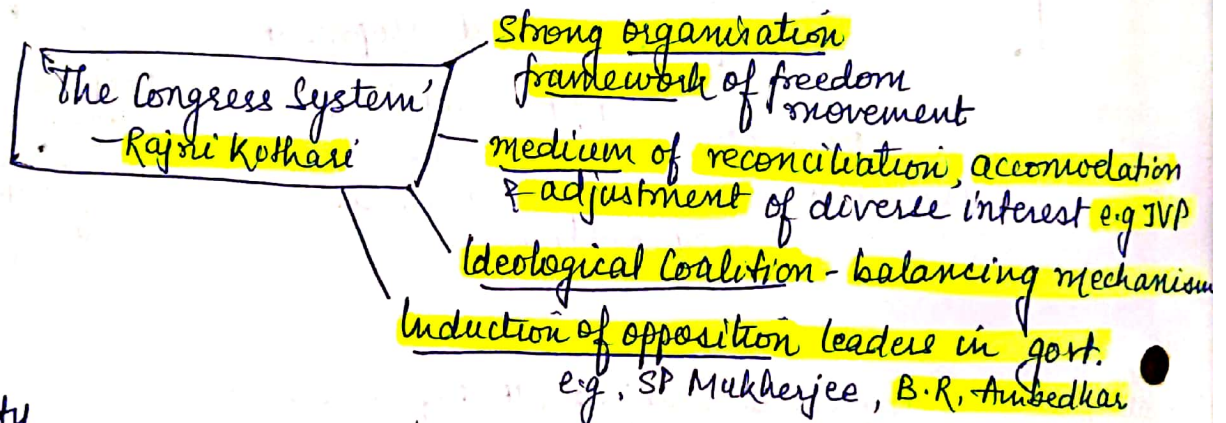 'The Congress System'
- Rajni Kothari
Strong organisation
framework of freedom
movement
medium of reconciliation, accomodation
& adjustment of diverse interest e.g JVP
Ideological Coalition - balancing mechanism
Induction of opposition leaders in govt.
e.g. SP Mukherjee, B.R. Ambedkar
ty